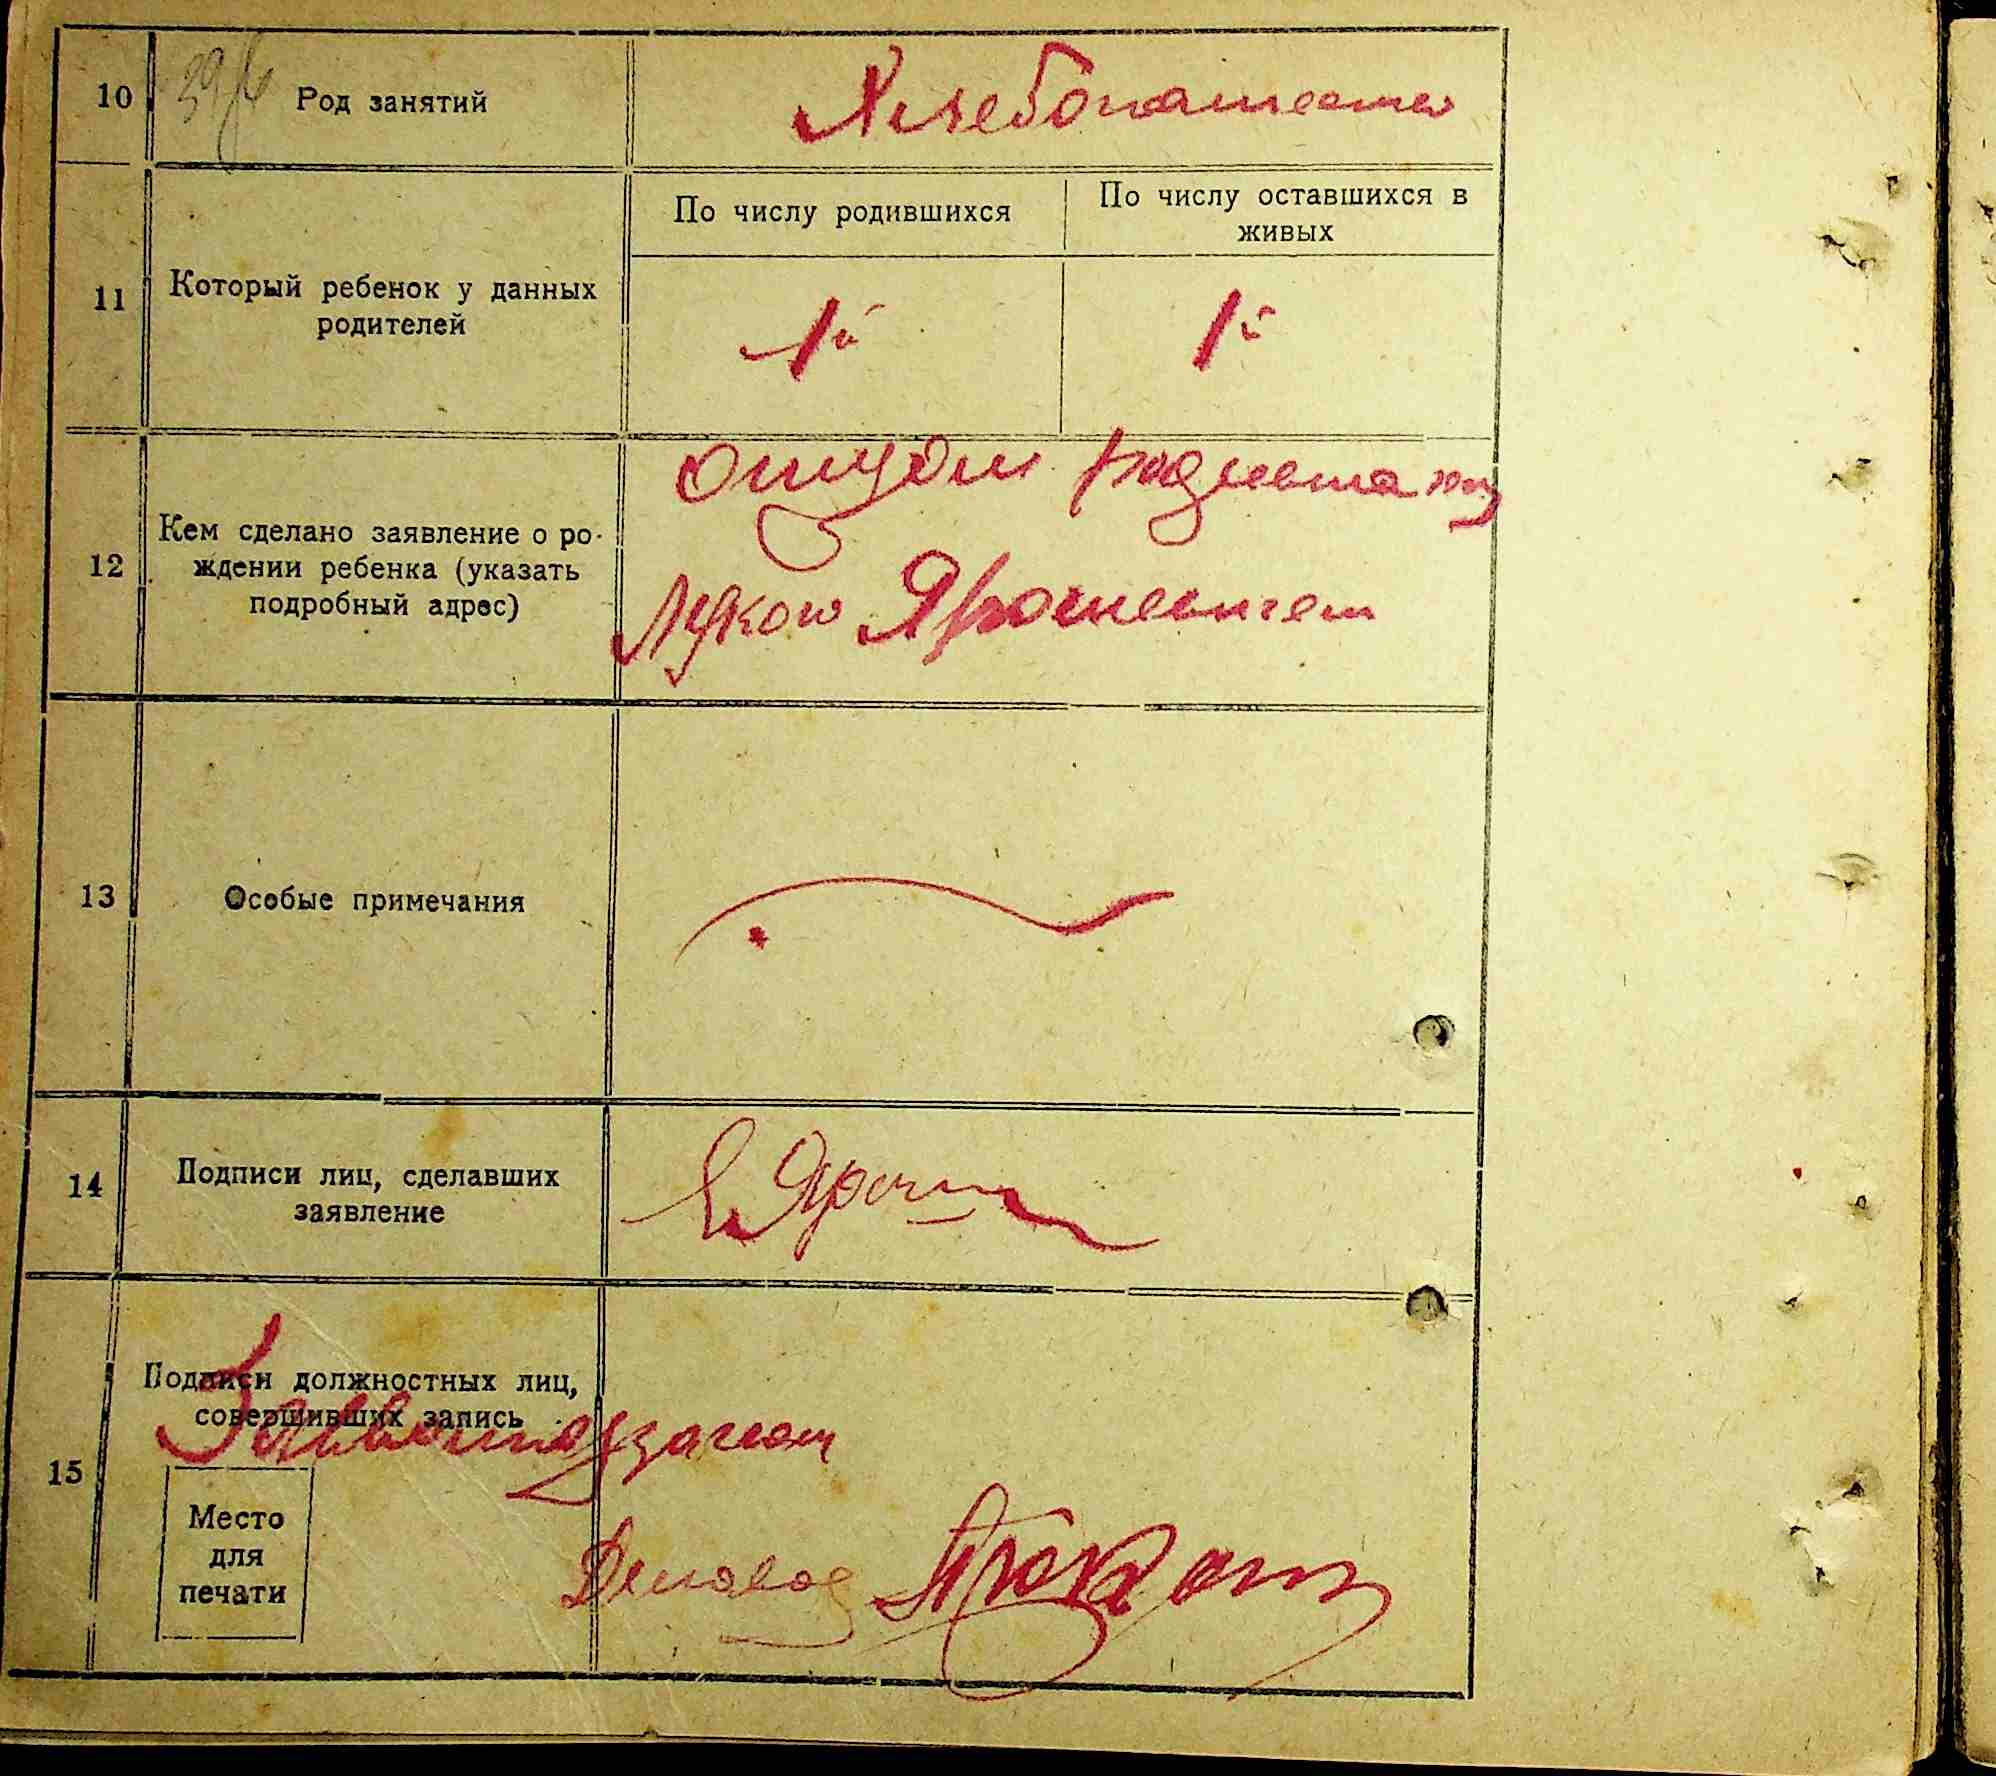 10
Род занятий
Хлебопашество
11
Который ребенок у данных
родителей
По числу родившихся
По числу оставшихся в
живых
1й
1й
12
Кем сделано заявление о ро-
ждении ребенка (указать
подробный адрес)
отцом
Лукою Ярошевичем
13
Особые примечания
14
Подписи лиц, сделавших
заявление
15
Подписи должностных лиц,
совершивших запись
Делопр
Место
для
печати